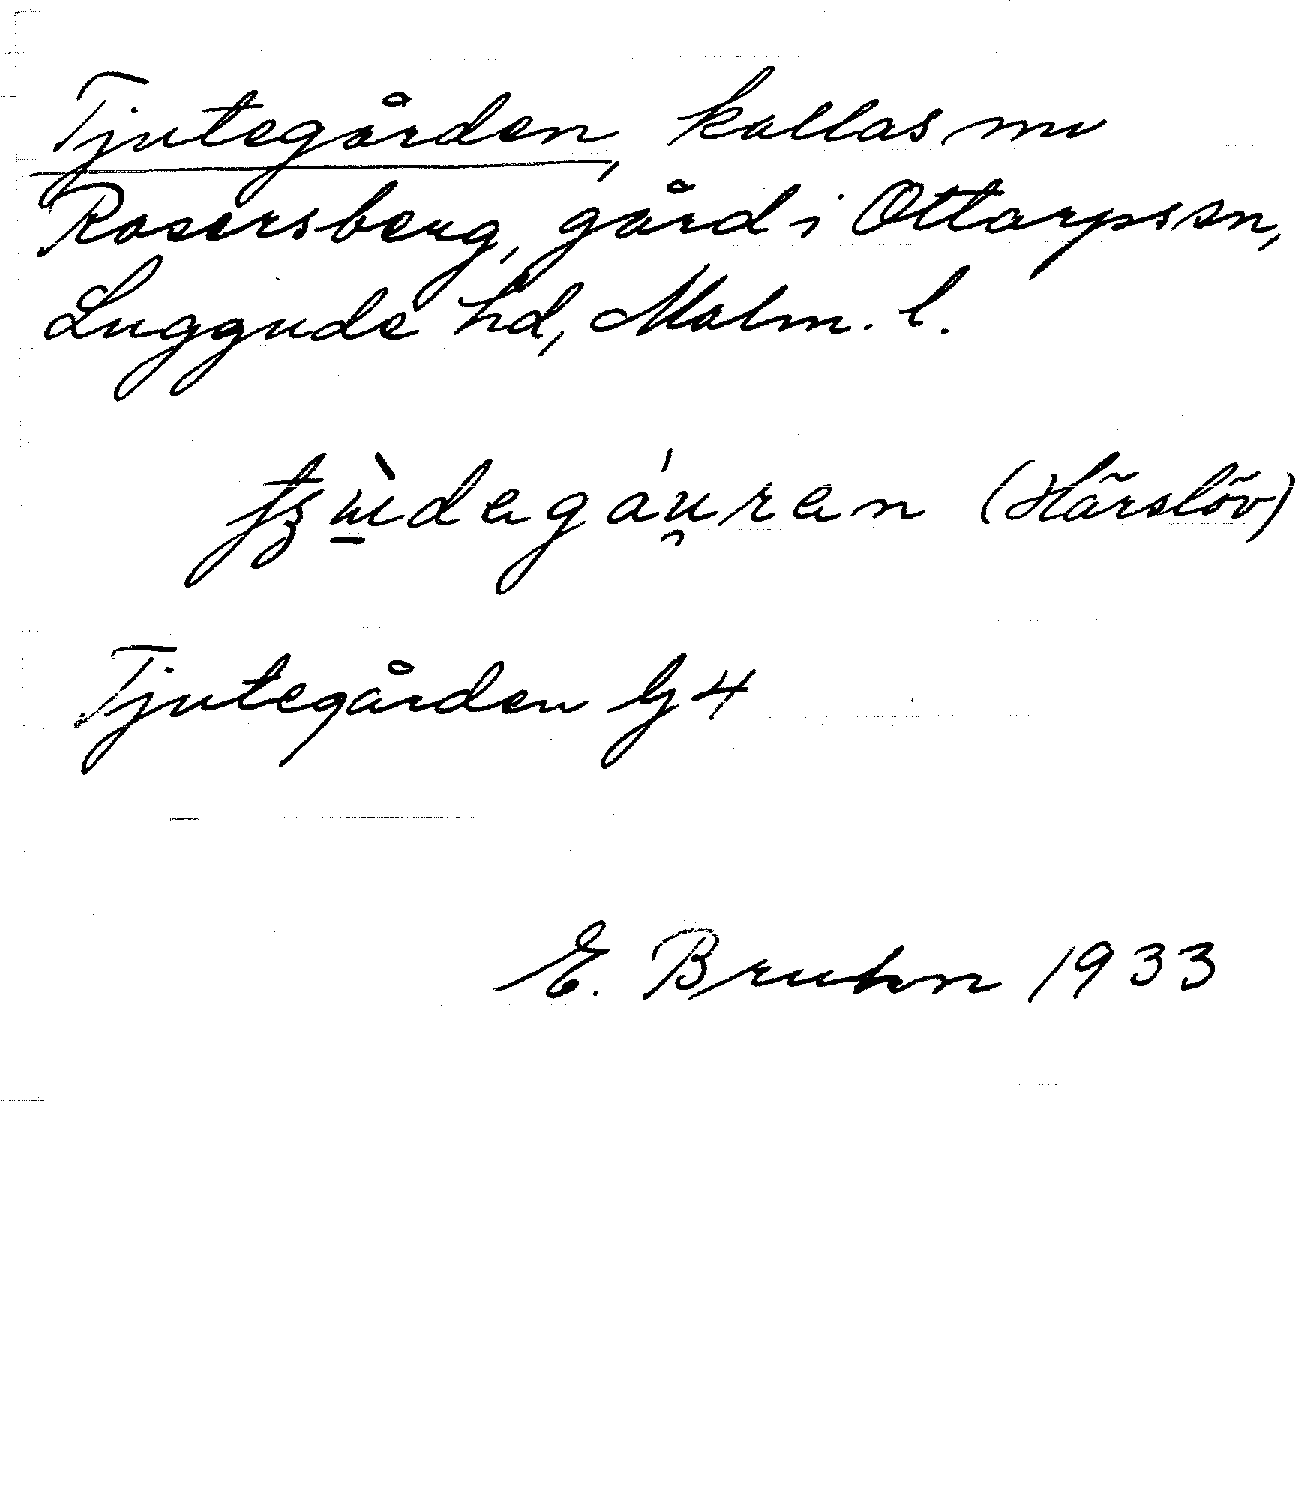 Tjutegården, kallas nu
Rosersberg, gård i Ottarpssn,
Luggude hd, Malm. l.
(Härslöv)
Tjutegården G4
E. Bruhn 1933